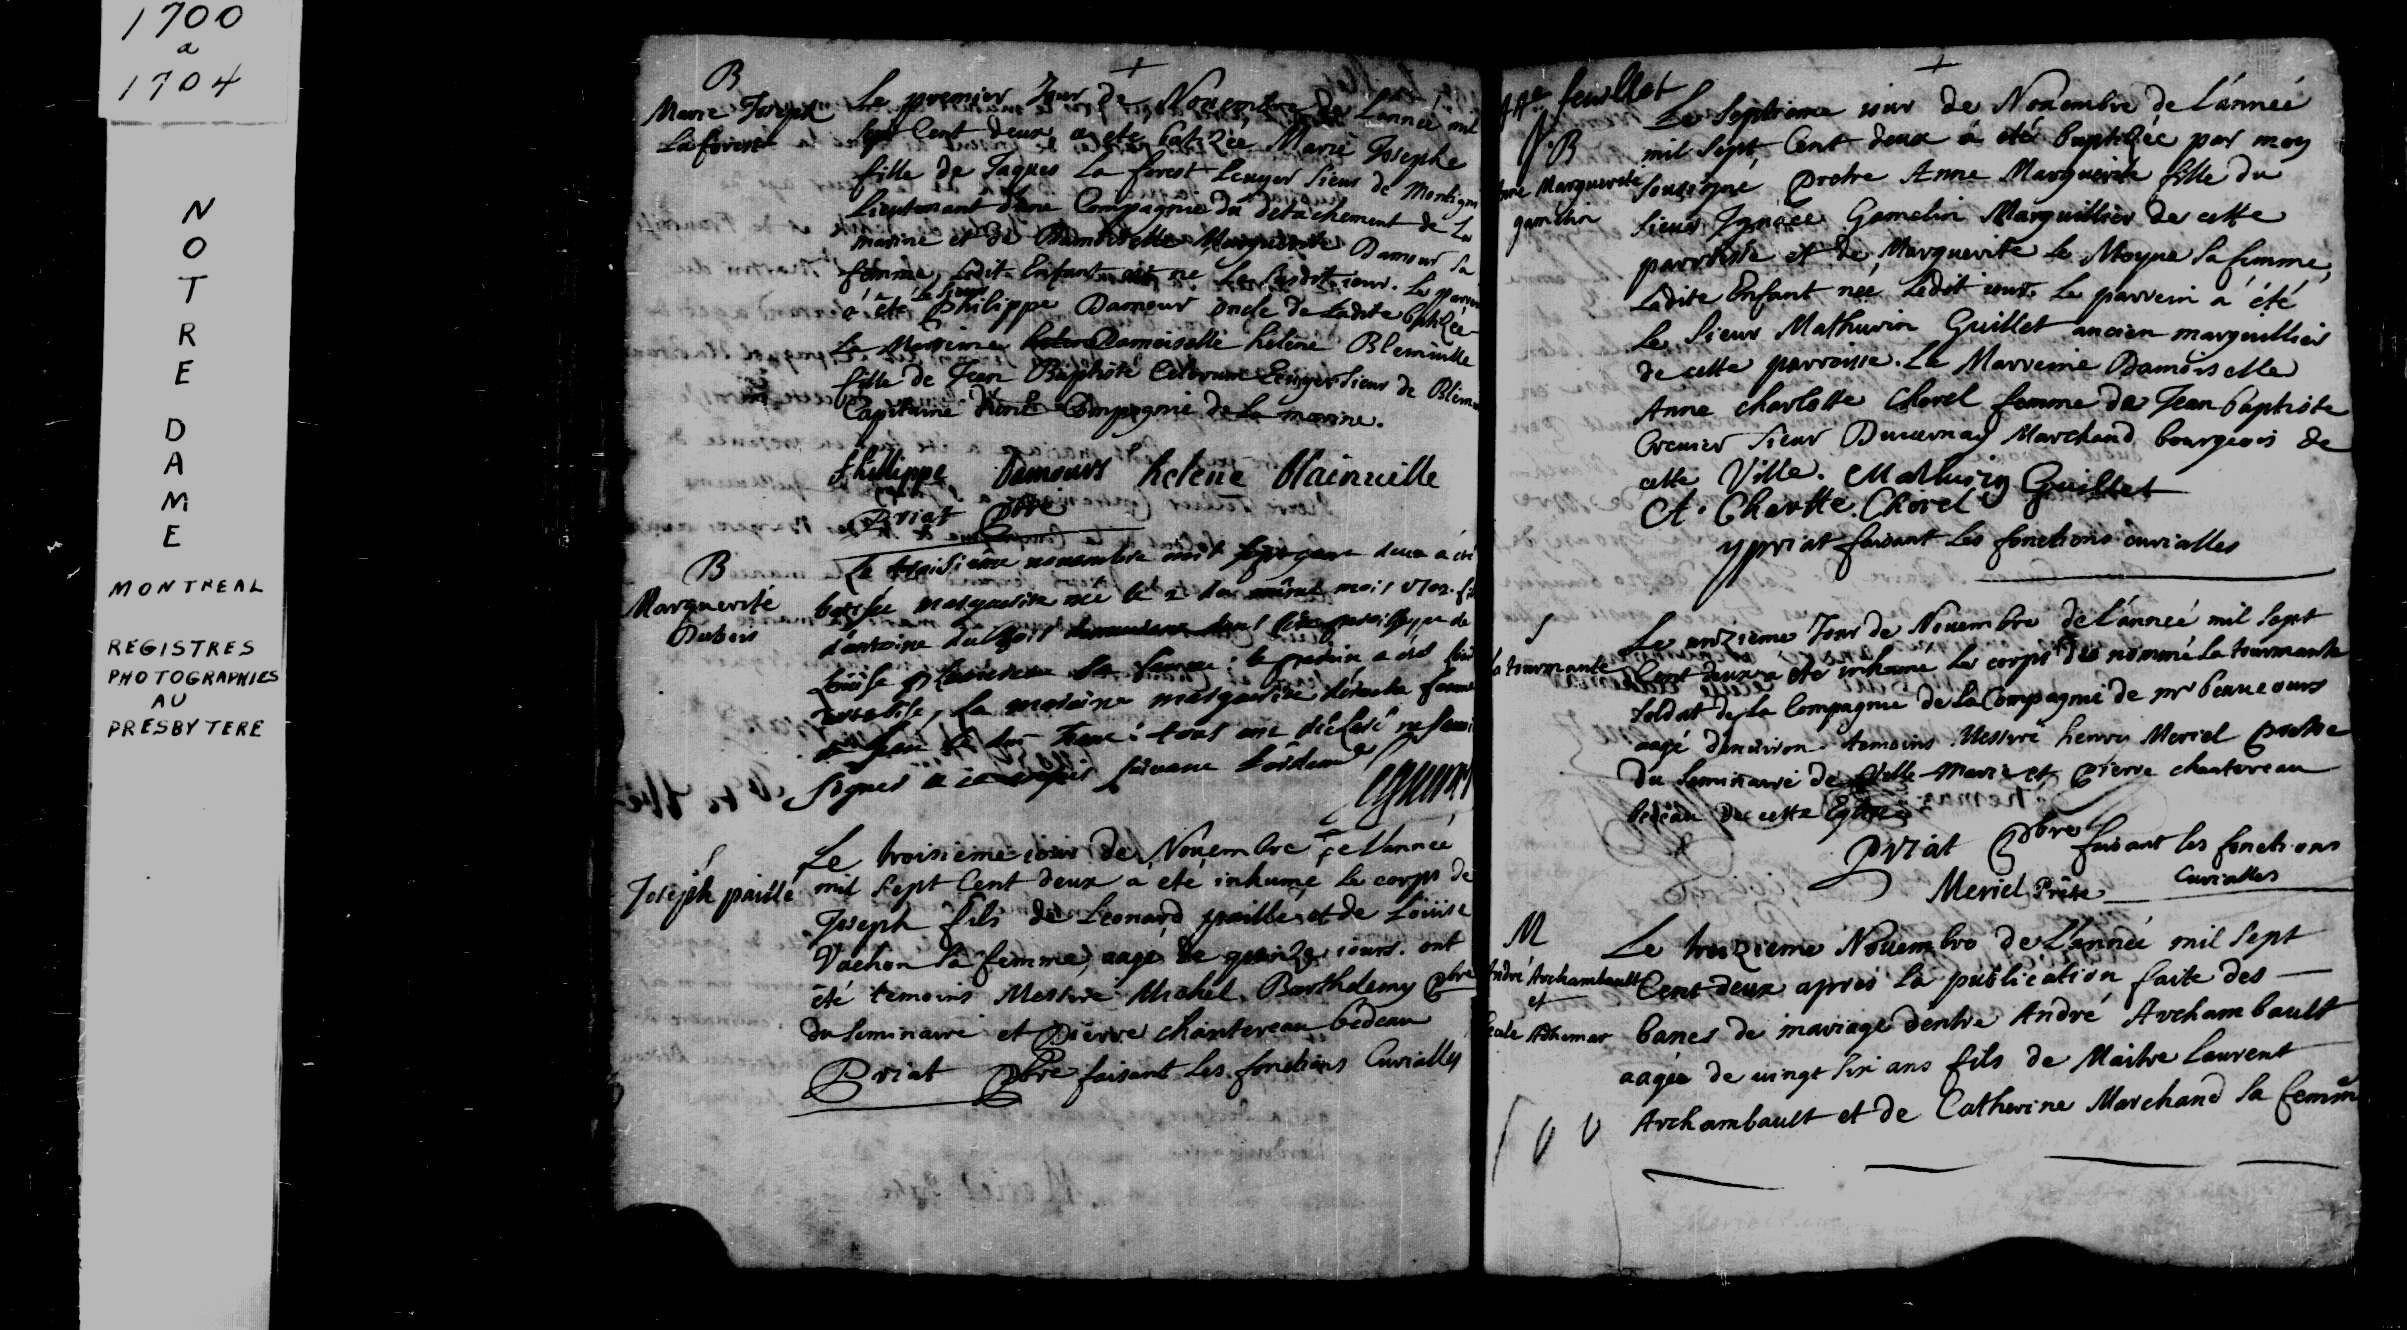 1700
a
1704
NOTRE DAME
MONTREAL
REGISTRES
PHOTOGRAPHIES
AU
PRESBYTERE
B
Marie Joseph
La forest
Le premier Jour de Nouembre de Lanneé mil
sept Cent deux a eté batizeé Marie Josephe
fille de Jaques La forest Ecuyer Sieur de Montigni
Lieutenant d'une Compagnie du détachement de La
marine et de Damoiselle Marguerite Damour sa
femme, Ledit Enfant né Le susdit iour. Le parrein
a été le Sieur Philippe Damour oncle de Ladite bptizeé
La Marreine Damoiselle heléne Blemuille
fille de Jean Baptiste Celoron Ecuyer Sieur de Blem
Capitaine d'une Compagnie de La marine.
Phillippe Damours helene blainuille
Priat Pbre
B
Marguerite
Dubois
Le troisiême nouembre mil sept cent deux a eté
batisée marguerite née le 2 du même mois 1702. fil
d'antoine du bois
Louise sa femme: le parein a été
la maraine marguerite femme
tous ont déclaré ne sauoir
signer
S
Joseph paillé
Le troisiéme iour de Nouembre de Lanneé
mil sept Cent deux a eté inhumé Le corps de
Joseph fils de Leonard paillé et de Loüise
Vachon sa femme, aagé de quinze iours. ont
été temoins Messire Michel Barthelemy Pbre
du Seminaire et Pierre chantereau bedeau
Priat Pbre faisant les fonctions Curialles
feuillet
B
Marguerite
gamelin
Le Septiéme iour de Nouembre de L'anneé
mil sept Cent deux a eté baptizeé par moy
soussigné Prétre Anne Marguerite fille du
Sieur Ignace Gamelin Marguillier de cette
parroisse et de Marguerite Le Moyne sa femme,
Ladite Enfant neé Ledit iour. Le parrein a été
Le Sieur Mathurin Guillet ancien marguillier
de cette parroisse. La Marreine Damoiselle
Anne charlotte Chorel femme de Jean baptiste
Creuier Sieur Duuernay Marchand bourgeois de
cette Ville. Mathurin Guillet
A. Charlotte Chorel
ypriat faisant les fonctions curialles
S
la tourmante
Le onziéme Jour de Nouembre de l'anneé mil sept
Cent deux a eté inhumé Le corps du nommé La tourmante
soldat de La Compagnie de La Compagnie de mr beaucours
aagé d'enuiron temoins Messire henri Meriel Prétre
du Seminaire de Ville-Marie et Pierre chantereau
bedeau de cette Eglise
Priat Pbre faisant les fonctions
Curialles
Meriel Prêtre
M
André Archambault
et
Adhemar
Le treizieme Nouembre de L'anneé mil sept
Cent deux aprés La publication faite des
bancs de mariage d'entre André Archambault
aagée de uingt six ans fils de Maitre Laurent
Archambault et de Catherine Marchand sa femme